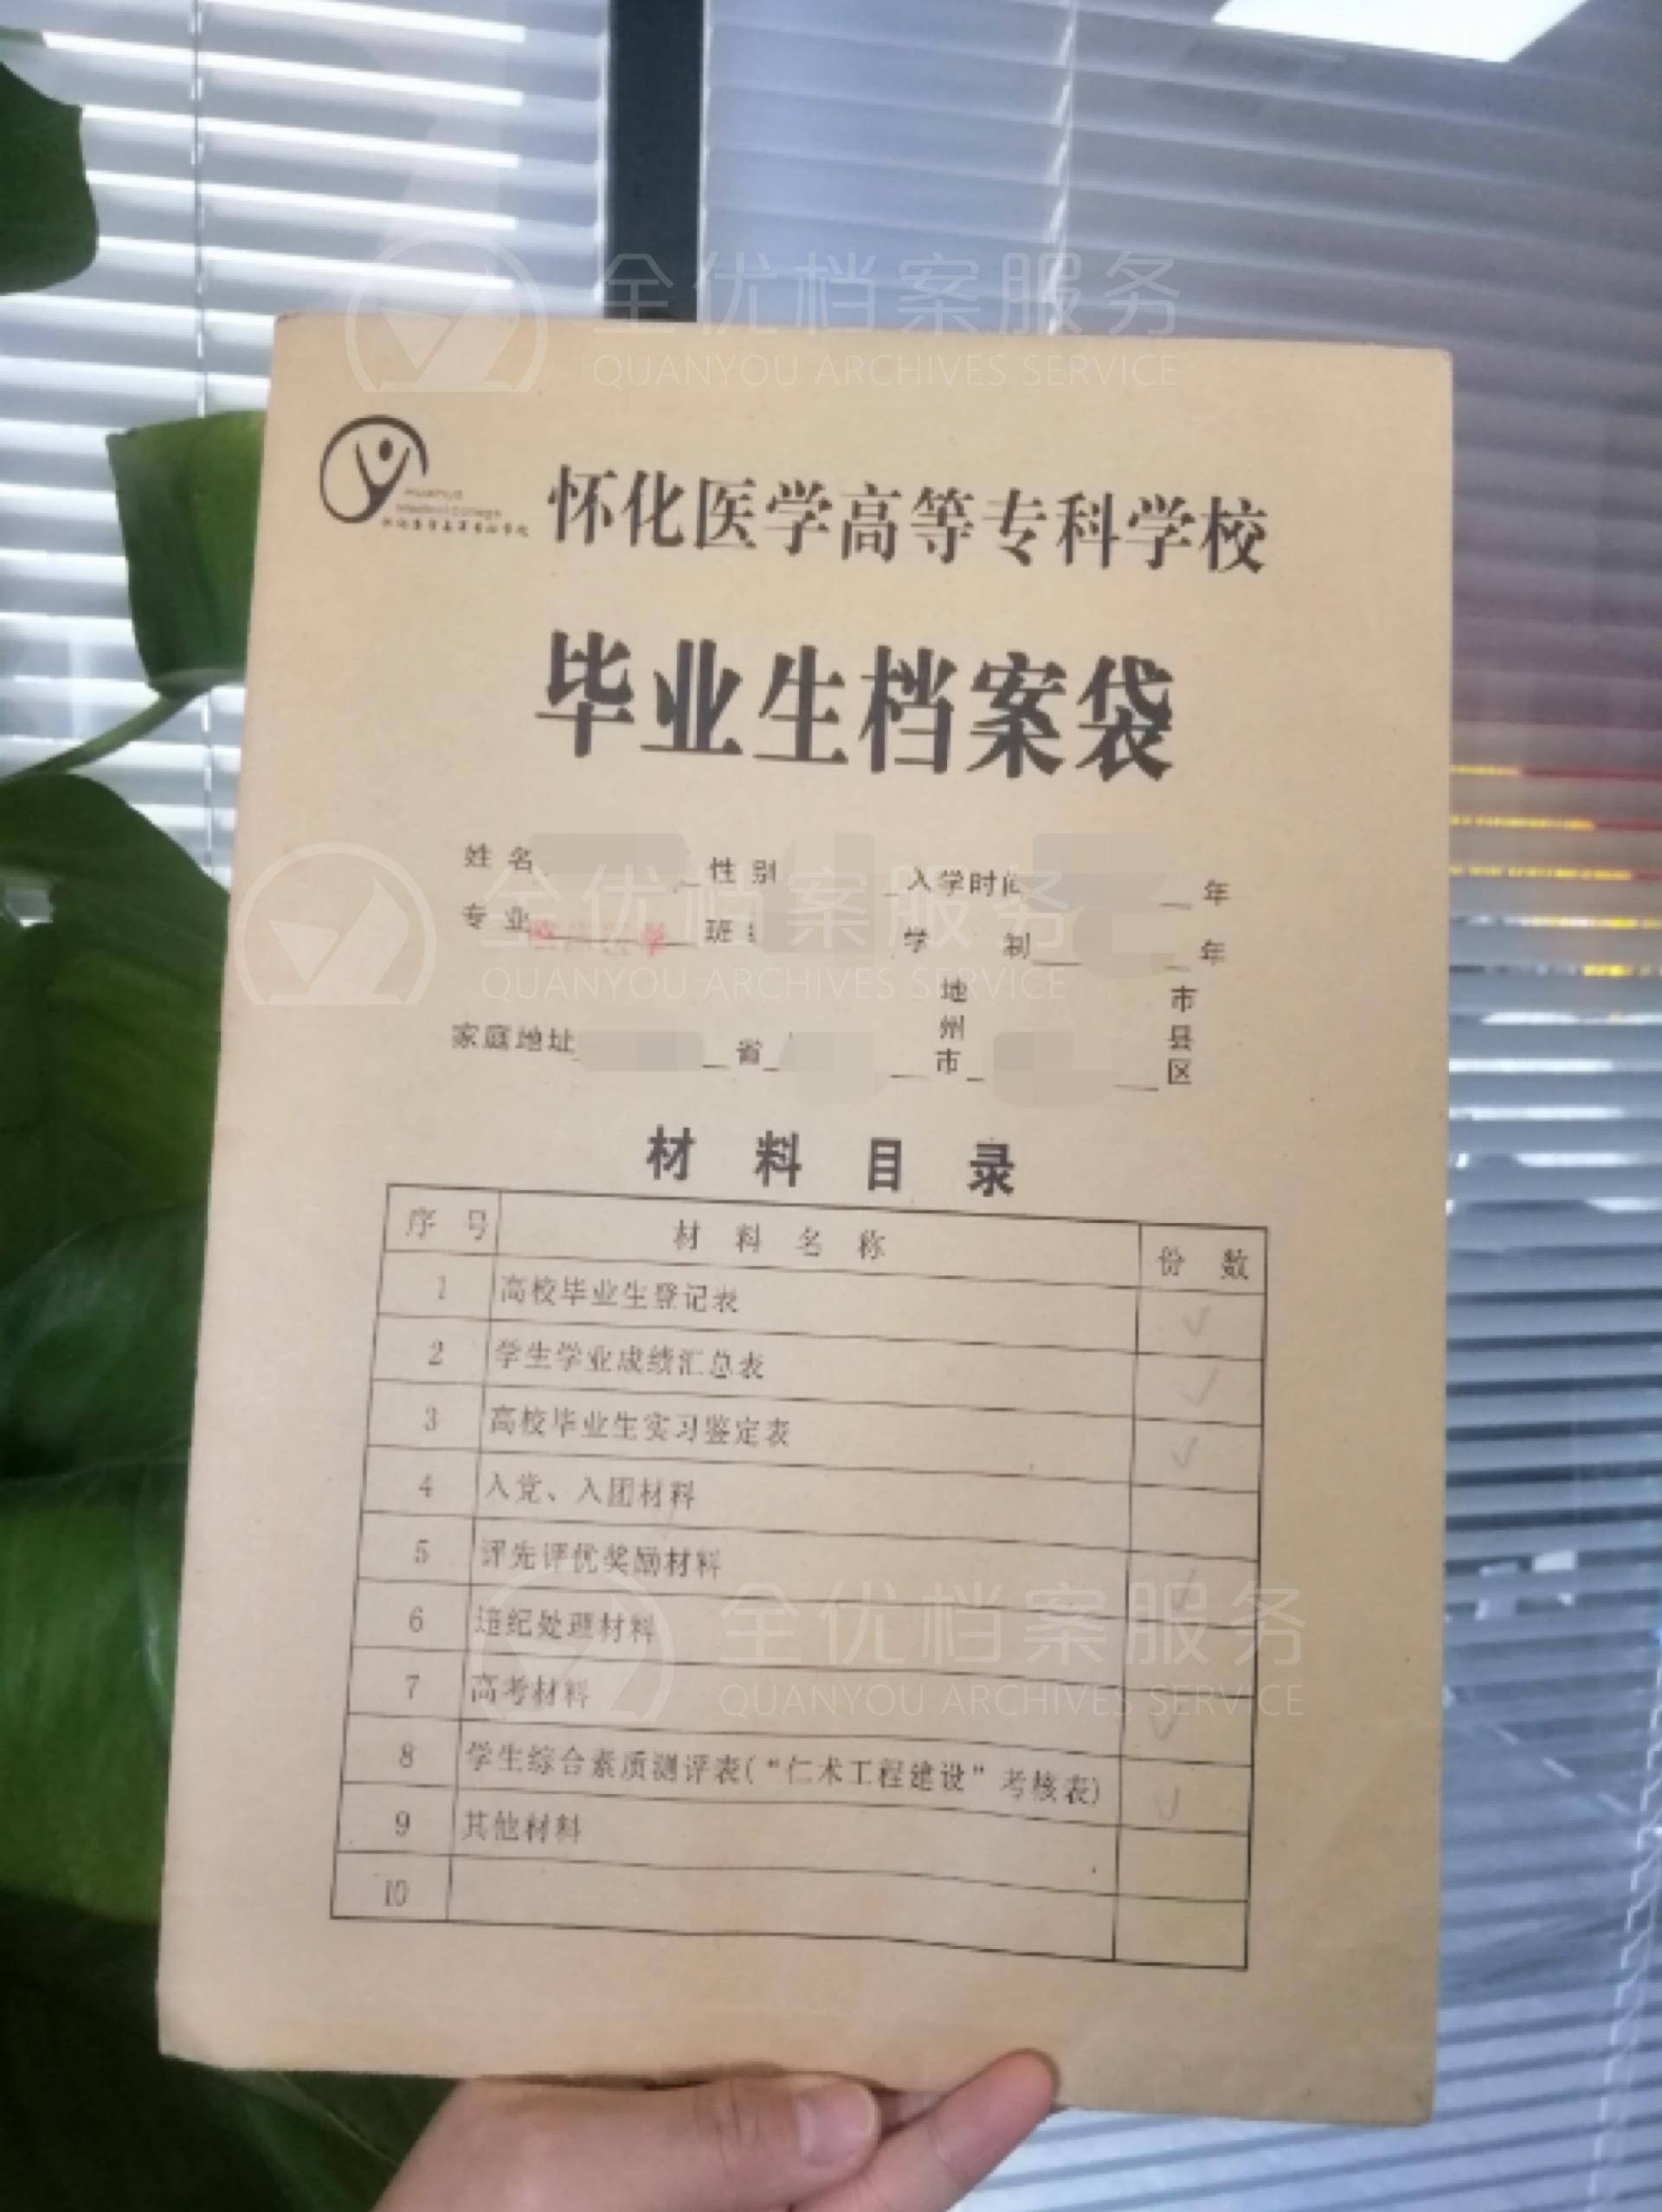 全优档案服务
QUANYOU ARCHIVES SERVICE
Huaihua
Medical College
怀化医学高等专科学校
毕业生档案袋
姓 名 性 别 入学时间 年
专 业 医学 班 学 制 年
全优档案服务
QUANYOU ARCHIVES SERVICE
家庭地址 省 地州市 市县区
材 料 目 录
序 号 材 料 名 称 份 数
1 高校毕业生登记表 ✓
2 学生学业成绩汇总表 ✓
3 高校毕业生实习鉴定表 ✓
4 入党、入团材料
5 评先评优奖励材料 ✓
6 违纪处理材料
7 高考材料 ✓
8 学生综合素质测评表(“仁术工程建设”考核表) ✓
9 其他材料
10
全优档案服务
QUANYOU ARCHIVES SERVICE